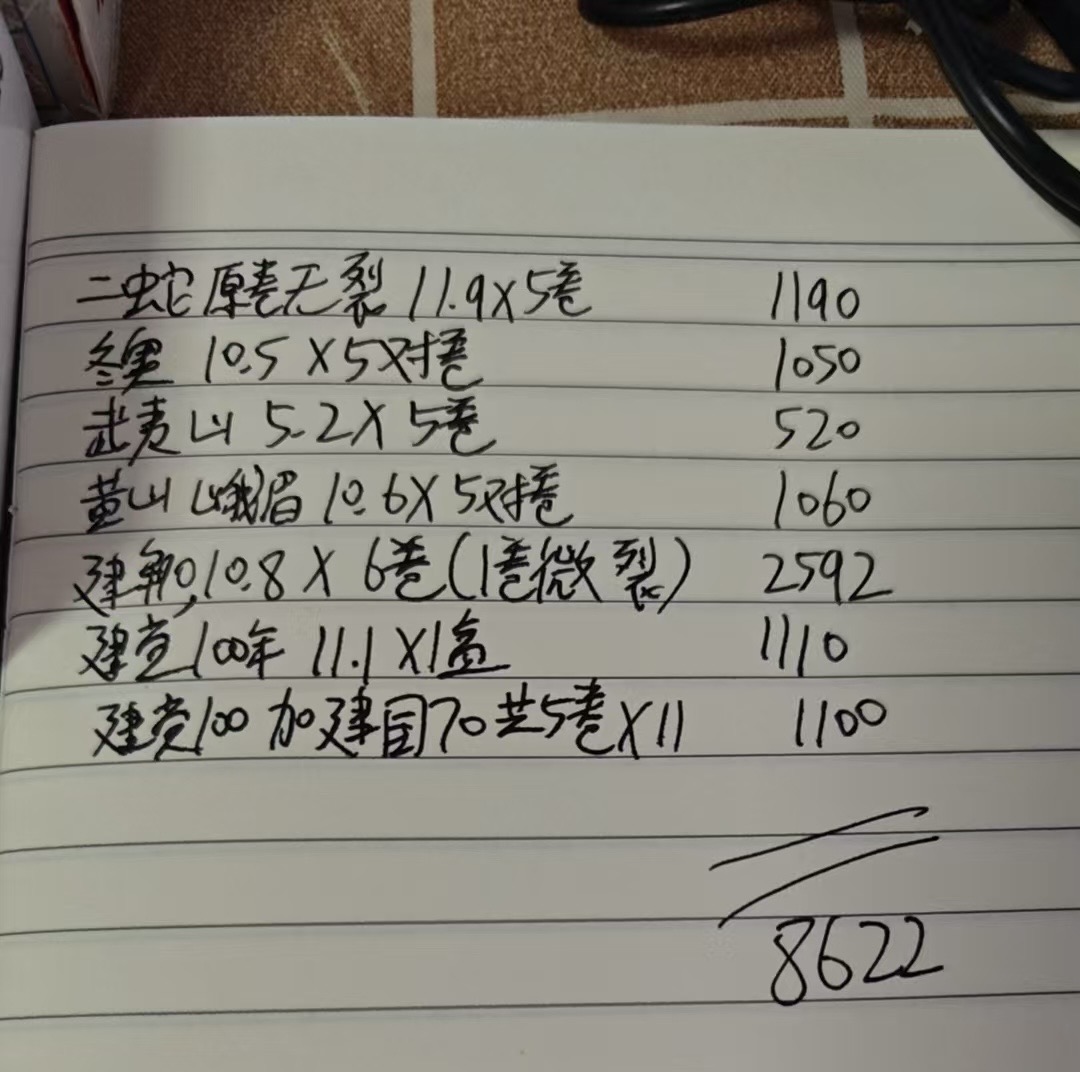 二蛇原卷无裂 11.9X5卷 1190
冬奥 10.5 X5对卷 1050
武夷山 5.2X 5卷 520
黄山 峨眉 10.6X5对卷 1060
建军,10.8X 6卷(1卷微裂) 2592
建党100年 11.1X1盒 1110
建党100 加建国70共5卷X11 1100
8622